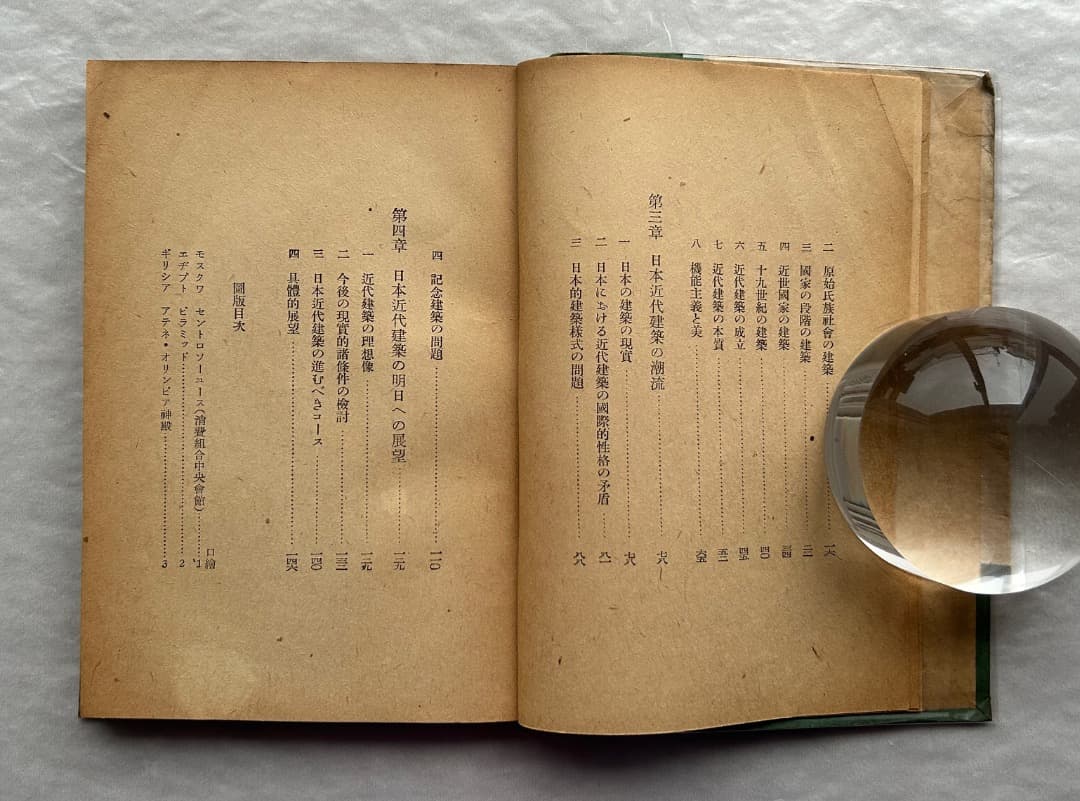 二 原始氏族社會の建築……一六
三 國家の段階の建築……二一
四 近世國家の建築……三四
五 十九世紀の建築……四〇
六 近代建築の成立……四五
七 近代建築の本質……五二
八 機能主義と美……六五
第三章 日本近代建築の潮流……七八
一 日本の建築の現實……七八
二 日本における近代建築の國際的性格の矛盾……八一
三 日本的建築樣式の問題……八八
四 記念建築の問題……一一〇
第四章 日本近代建築の明日への展望……一二九
一 近代建築の理想像……一二九
二 今後の現實的諸條件の檢討……一三二
三 日本近代建築の進むべきコース……一四〇
四 具體的展望……一四六
圖版目次
口繪
モスクワ セントロソーユース(消費組合中央會館)……1
エヂプト ピラミッド……2
ギリシア アテネ・オリンピア神殿……3